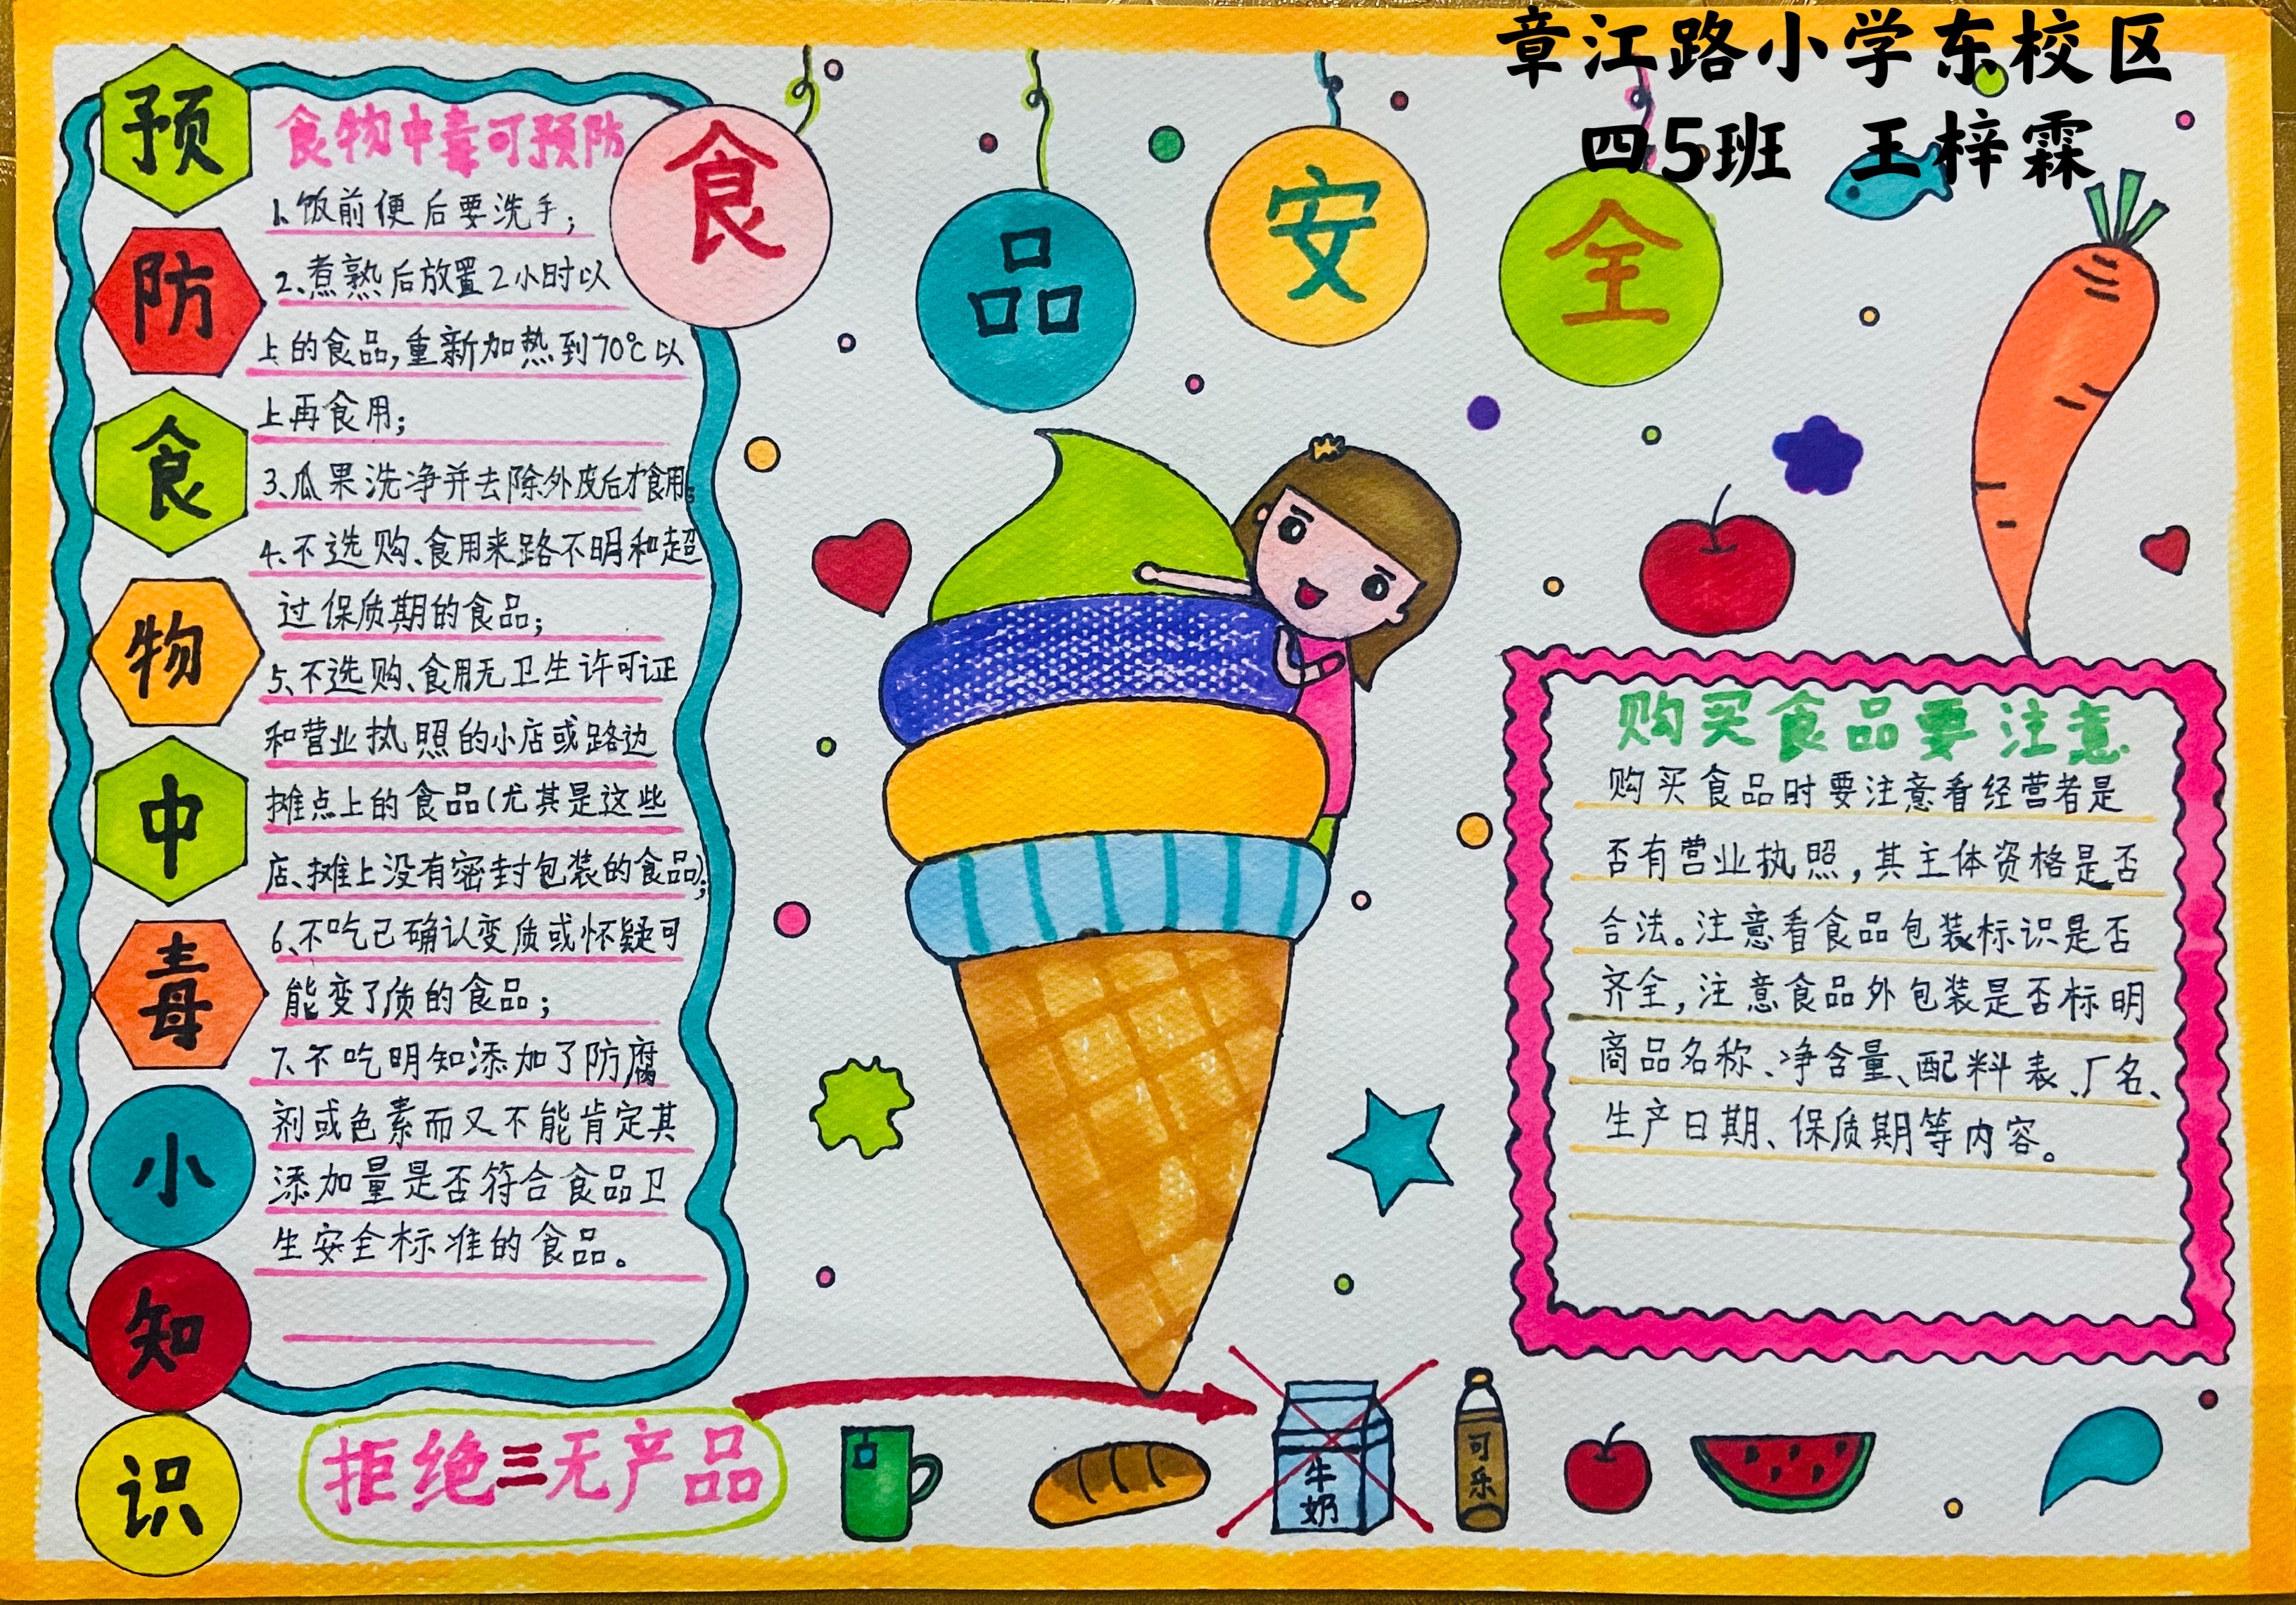 章江路小学东校区
四5班 王梓霖
食品安全
预防食物中毒小知识
食物中毒可预防
1、饭前便后要洗手；
2、煮熟后放置2小时以
上的食品，重新加热到70℃以
上再食用；
3、瓜果洗净并去除外皮后才食用；
4、不选购、食用来路不明和超
过保质期的食品；
5、不选购、食用无卫生许可证
和营业执照的小店或路边
摊点上的食品（尤其是这些
店、摊上没有密封包装的食品）；
6、不吃已确认变质或怀疑可
能变了质的食品；
7、不吃明知添加了防腐
剂或色素而又不能肯定其
添加量是否符合食品卫
生安全标准的食品。
购买食品要注意
购买食品时要注意看经营者是
否有营业执照，其主体资格是否
合法。注意看食品包装标识是否
齐全，注意食品外包装是否标明
商品名称、净含量、配料表、厂名、
生产日期、保质期等内容。
拒绝三无产品
牛奶
可乐